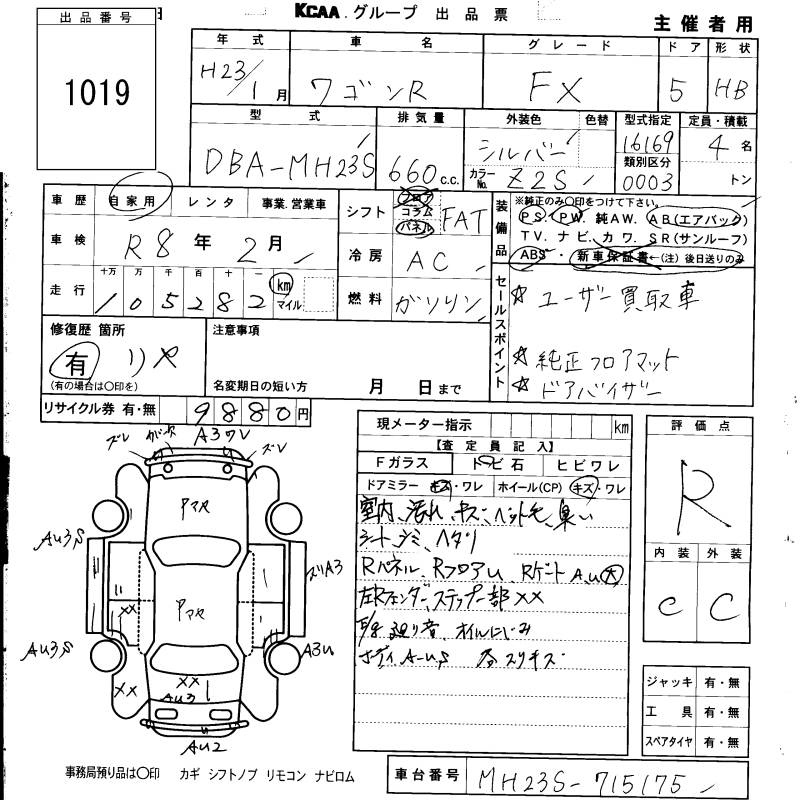 KCAA グループ 出品票
主催者用
出品番号
1019
年式 車名 グレード ドア 形状
H23/1月 ワゴンR FX 5 HB
型式 排気量 外装色 色替 型式指定 定員・積載
DBA-MH23S 660 c.c. シルバー 16169 4名
カラーNo. Z2S 類別区分 0003 トン
車歴 自家用 レンタ 事業.営業車
シフト フロア コラム パネル FAT
装備品 ※純正のみ○印をつけて下さい。
PS, PW, 純AW. AB(エアバック)
TV. ナビ. カワ. SR(サンルーフ)
ABS・新車保証書←(注)後日送りのみ
車検 R8年 2月
冷房 AC
走行 十万 万 千 百 十 一
105282 km マイル
燃料 ガソリン
セールスポイント
☆ ユーザー買取車
☆ 純正フロアマット
☆ ドアバイザー
修復歴 箇所
有 リヤ
(有の場合は○印を)
注意事項
名変期日の短い方 月 日まで
リサイクル券 有・無 9880円
現メーター指示 km
【査定員記入】
Fガラス トビ石 ヒビワレ
ドアミラー キズ・ワレ ホイール(CP) キズ・ワレ
室内、汚れ、キズ、ペット毛、臭い
シート、シミ、ヘタリ
Rパネル、RフロアU、Rゲート A.U大
左Rフェンダー、ステップ一部 XX
廻り音、オイルにじみ
ボディ A-U,S 各スリキズ
評価点
R
内装 外装
C C
ズレ ガリ A3ワレ ズレ
アマヤ
AU3S
ズリA3
XX
アマヤ
AU3S
A3U
XX
XX
AU3
AU2
ジャッキ 有・無
工具 有・無
スペアタイヤ 有・無
事務局預り品は○印 カギ シフトノブ リモコン ナビロム
車台番号 MH23S-715175